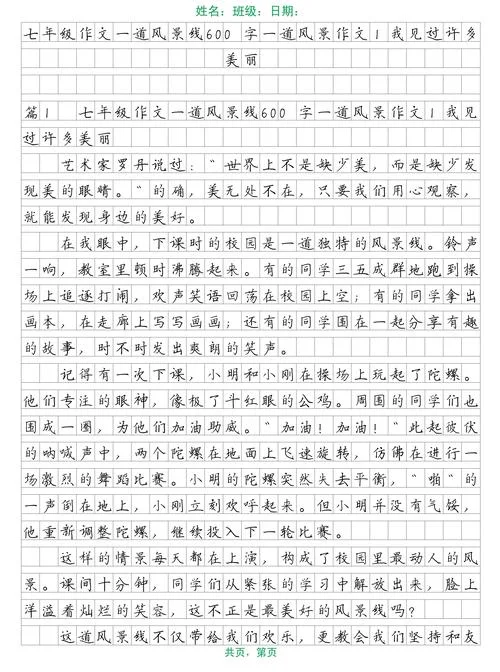 姓名：班级：日期：
七年级作文一道风景线600 字一道风景作文1 我见过许多
美丽
篇1 七年级作文一道风景线600 字一道风景作文1 我见
过许多美丽
艺术家罗丹说过：“世界上不是缺少美，而是缺少发
现美的眼睛。”的确，美无处不在，只要我们用心观察，
就能发现身边的美好。
在我眼中，下课时的校园是一道独特的风景线。铃声
一响，教室里顿时沸腾起来。有的同学三五成群地跑到操
场上追逐打闹，欢声笑语回荡在校园上空；有的同学拿出
画本，在走廊上写写画画；还有的同学围在一起分享有趣
的故事，时不时发出爽朗的笑声。
记得有一次下课，小明和小刚在操场上玩起了陀螺。
他们专注的眼神，像极了斗红眼的公鸡。周围的同学们也
围成一圈，为他们加油助威。“加油！加油！”此起彼伏
的呐喊声中，两个陀螺在地面上飞速旋转，仿佛在进行一
场激烈的舞蹈比赛。小明的陀螺突然失去平衡，“啪”的
一声倒在地上，小刚立刻欢呼起来。但小明并没有气馁，
他重新调整陀螺，继续投入下一轮比赛。
这样的情景每天都在上演，构成了校园里最动人的风
景。课间十分钟，同学们从紧张的学习中解放出来，脸上
洋溢着灿烂的笑容，这不正是最美好的风景线吗？
这道风景线不仅带给我们欢乐，更教会我们坚持和友
共页，第页